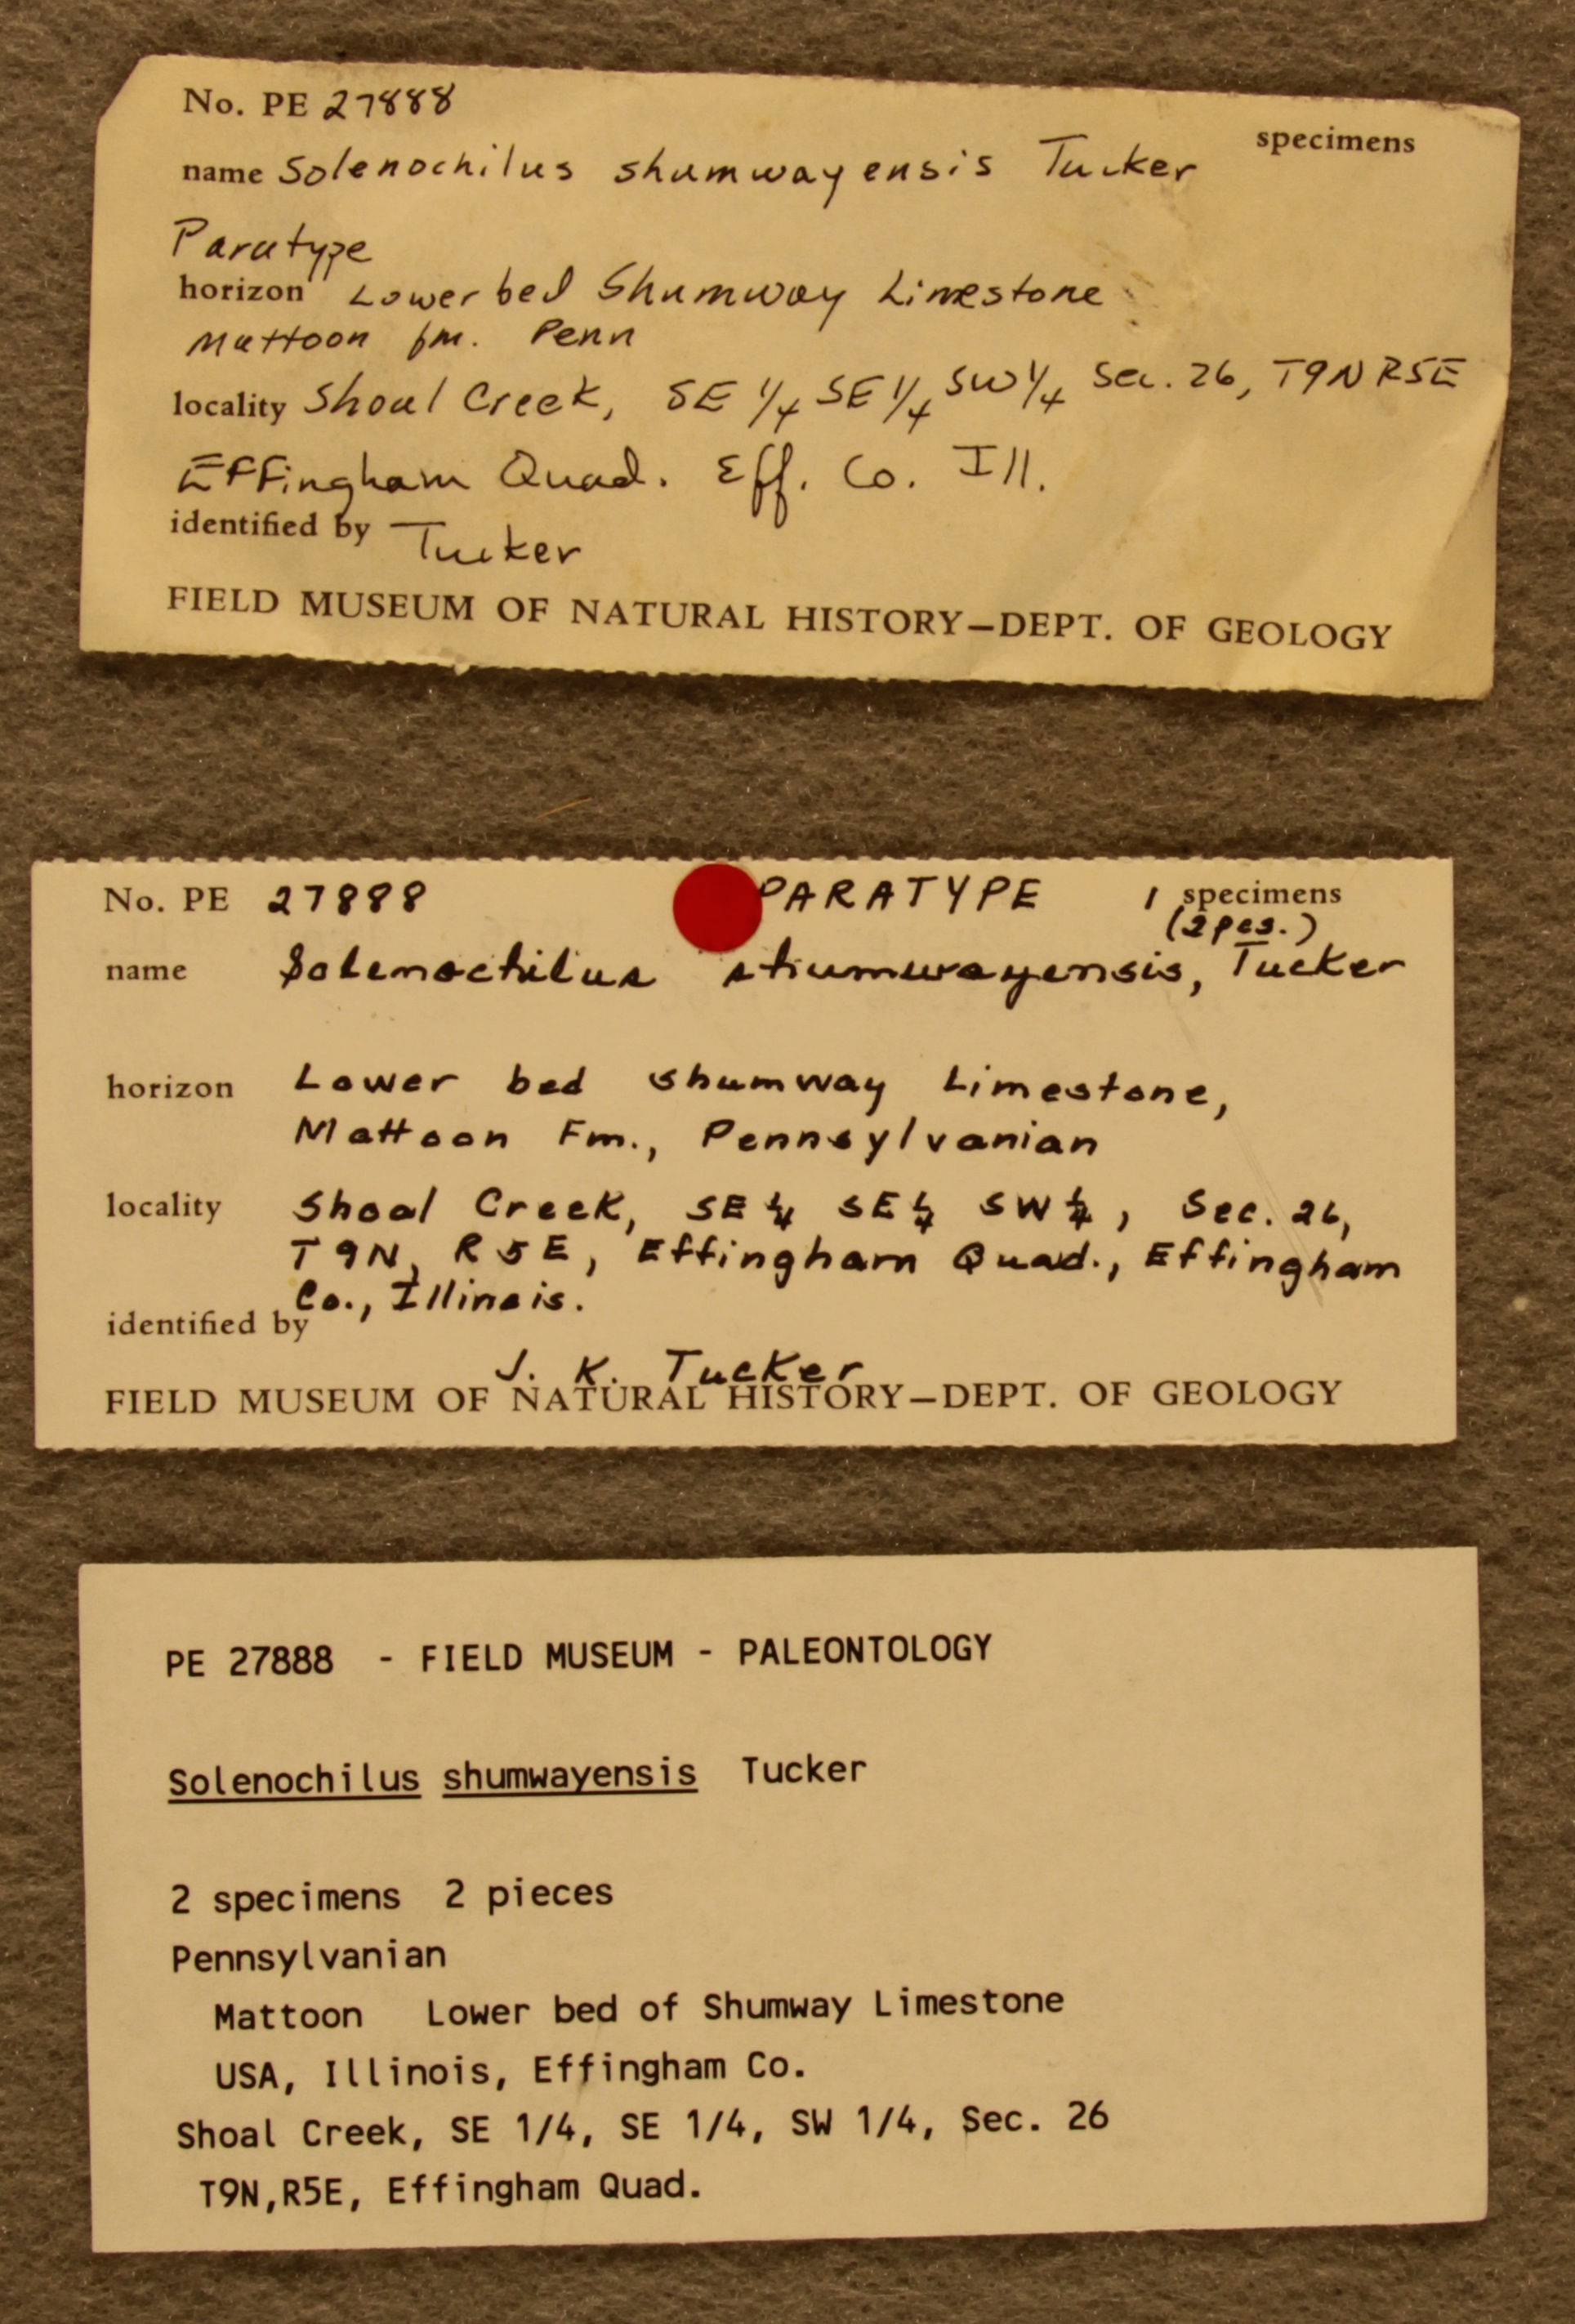 No. PE 27888
specimens
name Solenochilus shumwayensis Tucker
Paratype
horizon Lower bed Shumway Limestone
Mattoon fm. Penn
locality Shoal Creek, SE 1/4 SE 1/4 SW 1/4 Sec. 26, T9N R5E
Effingham Quad. Eff. Co. Ill.
identified by Tucker
FIELD MUSEUM OF NATURAL HISTORY—DEPT. OF GEOLOGY
No. PE 27888 PARATYPE 1 specimens
(2 pcs.)
name Solenochilus shumwayensis, Tucker
horizon Lower bed Shumway Limestone,
Mattoon Fm., Pennsylvanian
locality Shoal Creek, SE 1/4 SE 1/4 SW 1/4, Sec. 26,
T9N, R5E, Effingham Quad., Effingham
Co., Illinois.
identified by
J. K. Tucker
FIELD MUSEUM OF NATURAL HISTORY—DEPT. OF GEOLOGY
PE 27888 - FIELD MUSEUM - PALEONTOLOGY
Solenochilus shumwayensis Tucker
2 specimens 2 pieces
Pennsylvanian
Mattoon Lower bed of Shumway Limestone
USA, Illinois, Effingham Co.
Shoal Creek, SE 1/4, SE 1/4, SW 1/4, Sec. 26
T9N,R5E, Effingham Quad.